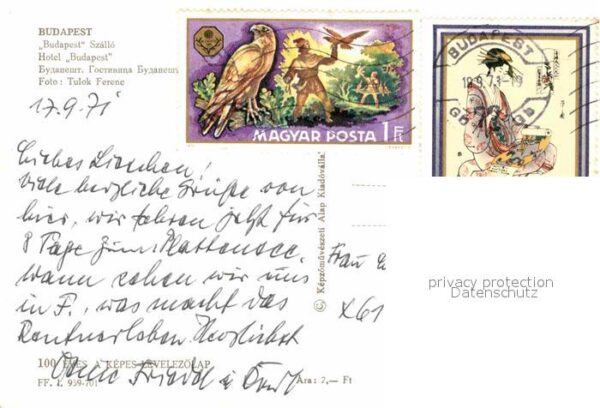 BUDAPEST
„Budapest" Szálló
Hotel „Budapest"
Будапешт. Гостиница Будапешт
Foto: Tulok Ferenc
17.9.71
MAGYAR POSTA 1 Ft
BUDAPEST
Liebes Lienchen!
Viele herzliche Grüße von
hier, wir fahren jetzt für
8 Tage zum Plattensee.
wann sehen wir uns
in F., was macht das
Rentnerleben. Herzlichst
Friedl u.
Frau
X61
© Képzőművészeti Alap Kiadóvállal
privacy protection
Datenschutz
100 ÉVES A KÉPES LEVELEZŐLAP
FF. I. 959-701
Ára: 2,— Ft